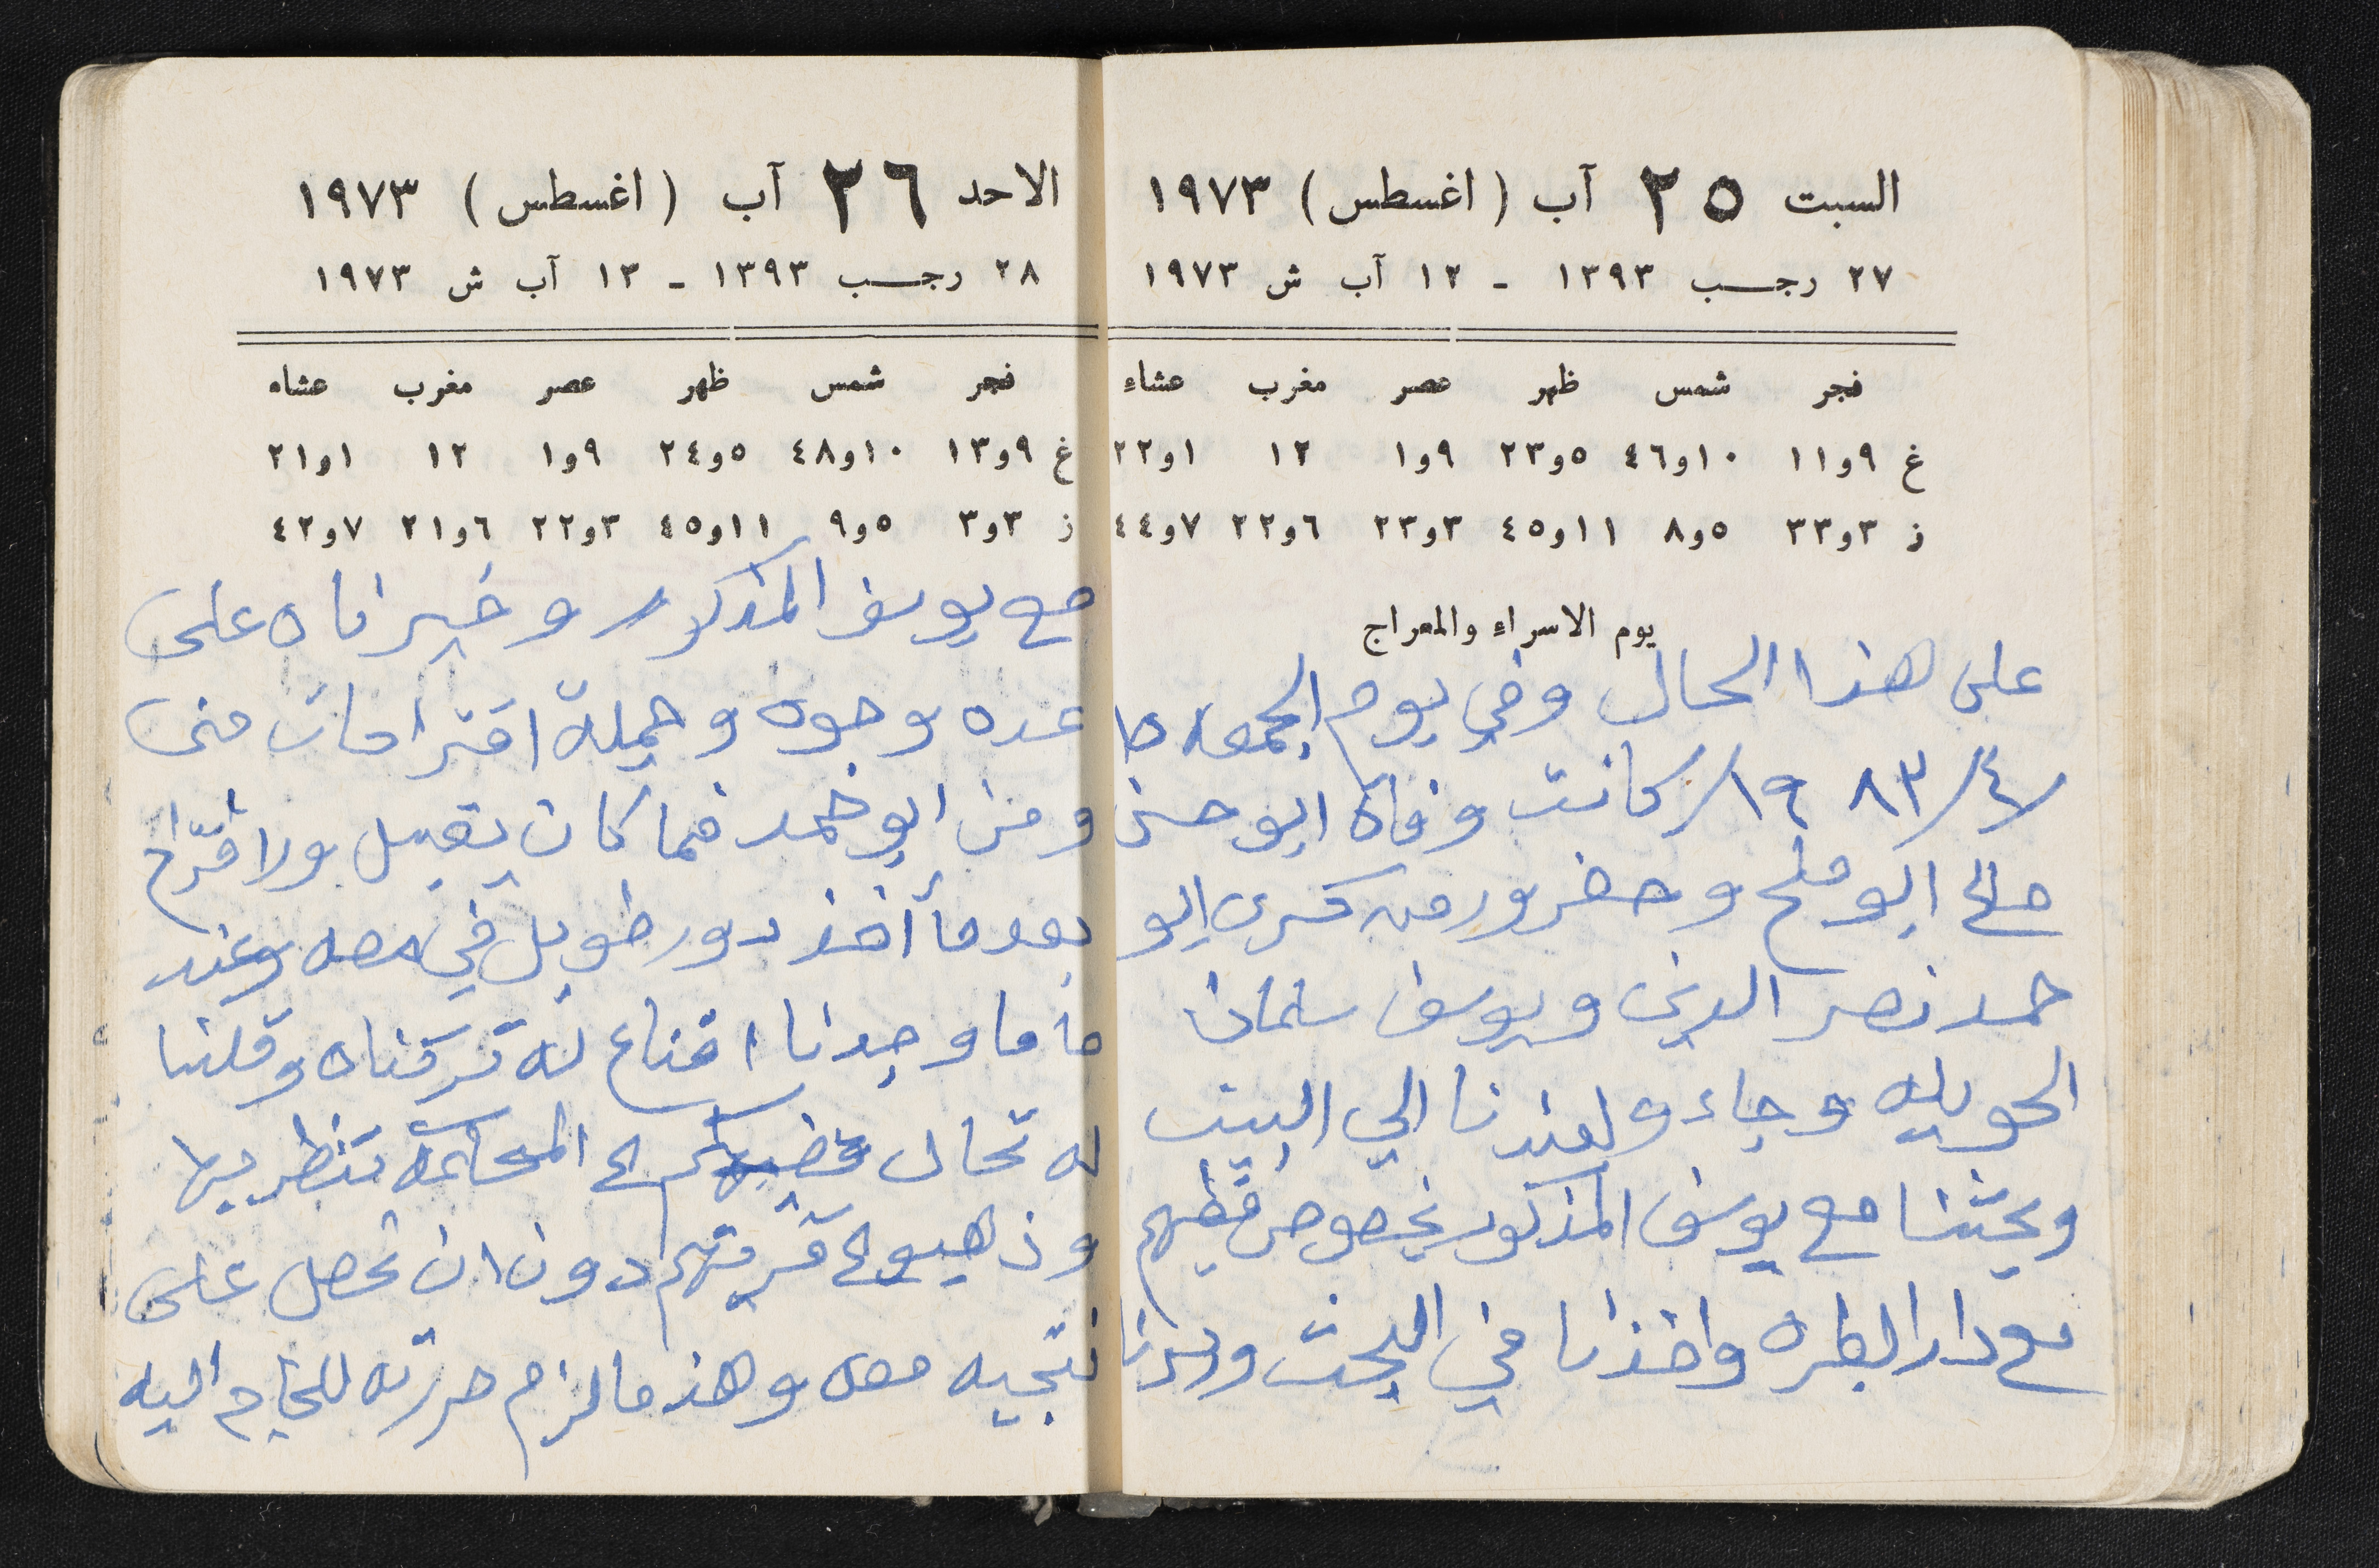 السبت ٢٥ آب (اغسطس) ١٩٧٣
٢٧ رجب ١٣٩٣ - ١٢ آب ش ١٩٧٣
فجر شمس ظهر عصر مغرب عشاء
غ ٩و١١ ١٠و٤٦ ٥و٢٣ ٩و١ ١٢ ١و٢٢
ز ٣و٣٣ ٥و٨ ١١و٤٥ ٣و٢٣ ٦و٢٢ ٧و٤٤
يوم الاسراء والمعراج
على هذا الحال وفي يوم الجمعه
٤/ ١٩٨٣/ كانت وفاة ابو حسن
صالح ابو ملح وحضرو من ابو
حمد نصر الدين ويوسف سلمان
وجاءو لعندنا الي البيت
وبحثنا مع يوسف المذكور بخصوص قظيهم
مع دار واخذنا في البحث
الاحد ٢٦ آب (اغسطس) ١٩٧٣
٢٨ رجب ١٣٩٣ - ١٣ آب ش ١٩٧٣
فجر شمس ظهر عصر مغرب عشاء
غ ٩و١٣ ١٠و٤٨ ٥و٢٤ ٩و١ ١٢ ١و٢١
ز ٣و٣ ٥و٩ ١١و٤٥ ٣و٢٢ ٦و٢١ ٧و٤٢
مع يوسف المذكور وخيرناه على
عده وجوه وجملة اقتراحات مني
ومن ابو حمد فما كان يقبل ولا اقتراح
بعدما أخذ دور طويل في معه وعند
ما ما وجدنا اقناع له تركناه وقلنا
له تحال المحاكمه تنظر بها
وذهبو الى قريتهم دون ان نحصل على
نتجيه معه وهذ ما لزم حررته اليه